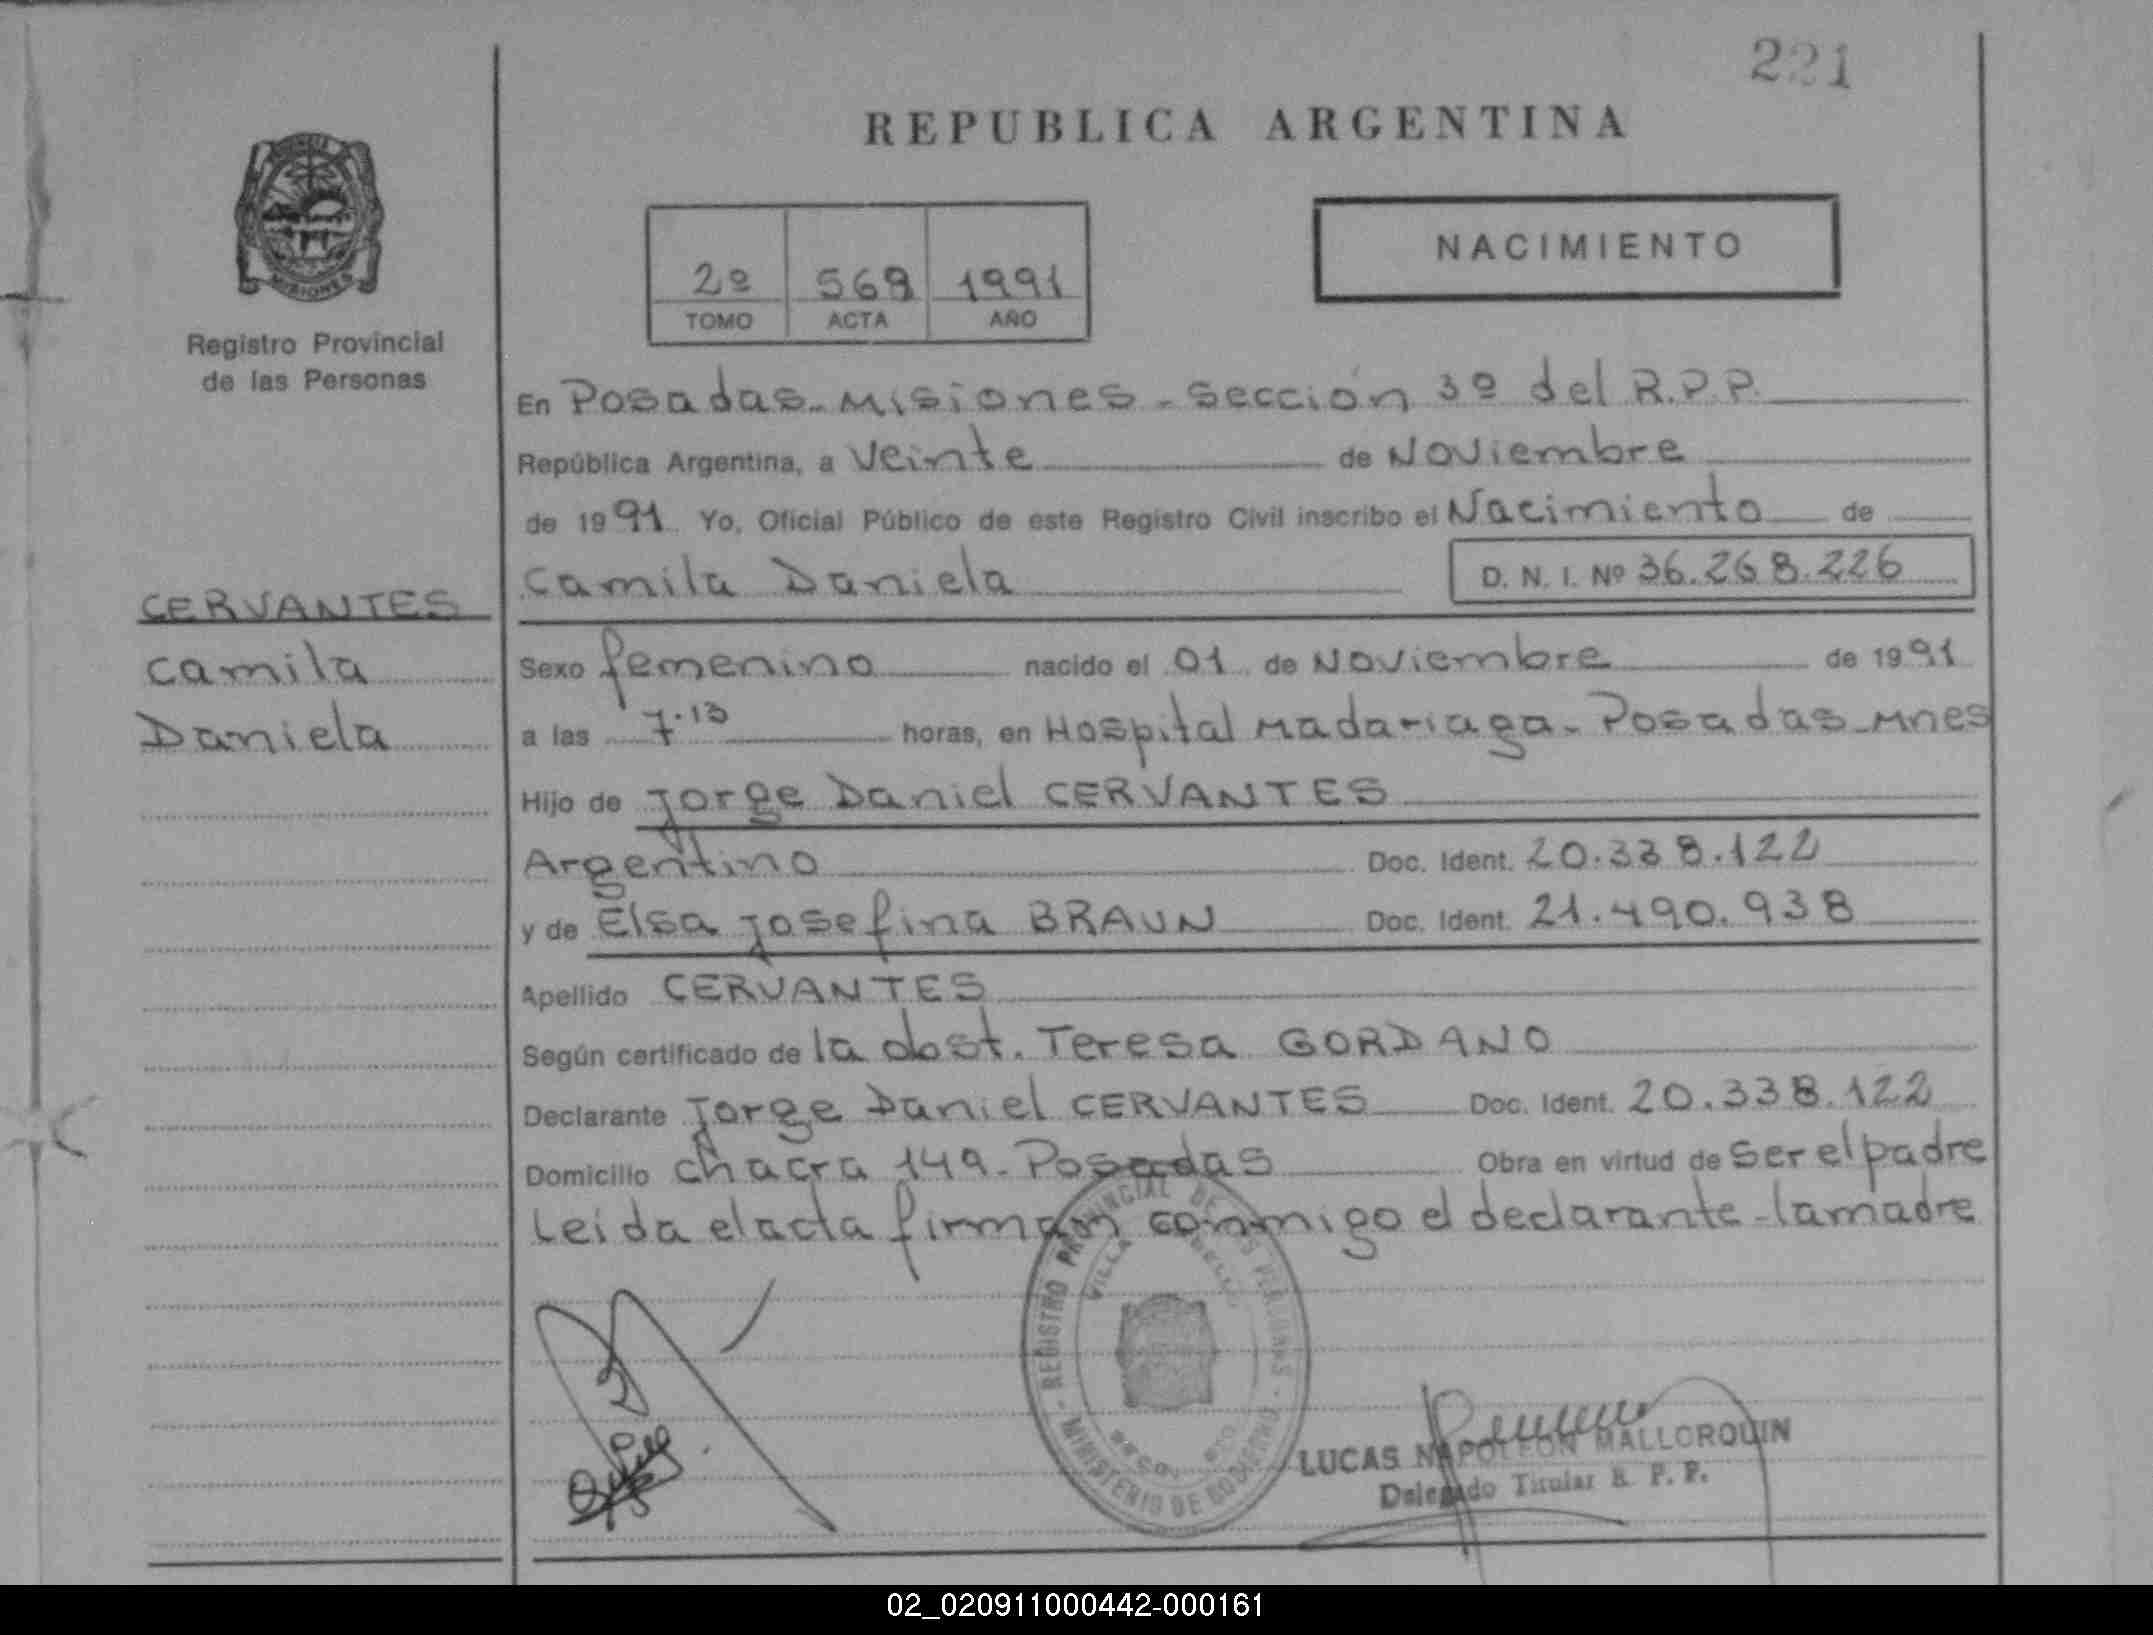 221
REPUBLICA ARGENTINA
MISIONES
Registro Provincial
de las Personas
2º 569 1991
TOMO ACTA AÑO
NACIMIENTO
En Posadas-Misiones-Sección 3º del R.P.P.
República Argentina, a Veinte de Noviembre
de 1991 Yo, Oficial Público de este Registro Civil inscribo el Nacimiento de
Camila Daniela D. N. I. Nº 36.268.226
CERVANTES
Camila
Daniela
Sexo femenino nacido el 01 de Noviembre de 1991
a las 7.13 horas, en Hospital Madariaga-Posadas-Mnes
Hijo de Jorge Daniel CERVANTES
Argentino Doc. Ident. 20.338.122
y de Elsa Josefina BRAUN Doc. Ident. 21.490.938
Apellido CERVANTES
Según certificado de la obst. Teresa GORDANO
Declarante Jorge Daniel CERVANTES Doc. Ident. 20.338.122
Domicilio chacra 149-Posadas Obra en virtud de ser el padre
Leida el acta firman conmigo el declarante-la madre
REGISTRO PROVINCIAL DE LAS PERSONAS
MINISTERIO DE GOBIERNO
VILLA
LUCAS NAPOLEON MALLORQUIN
Delegado Titular R. P. P.
02_020911000442-000161